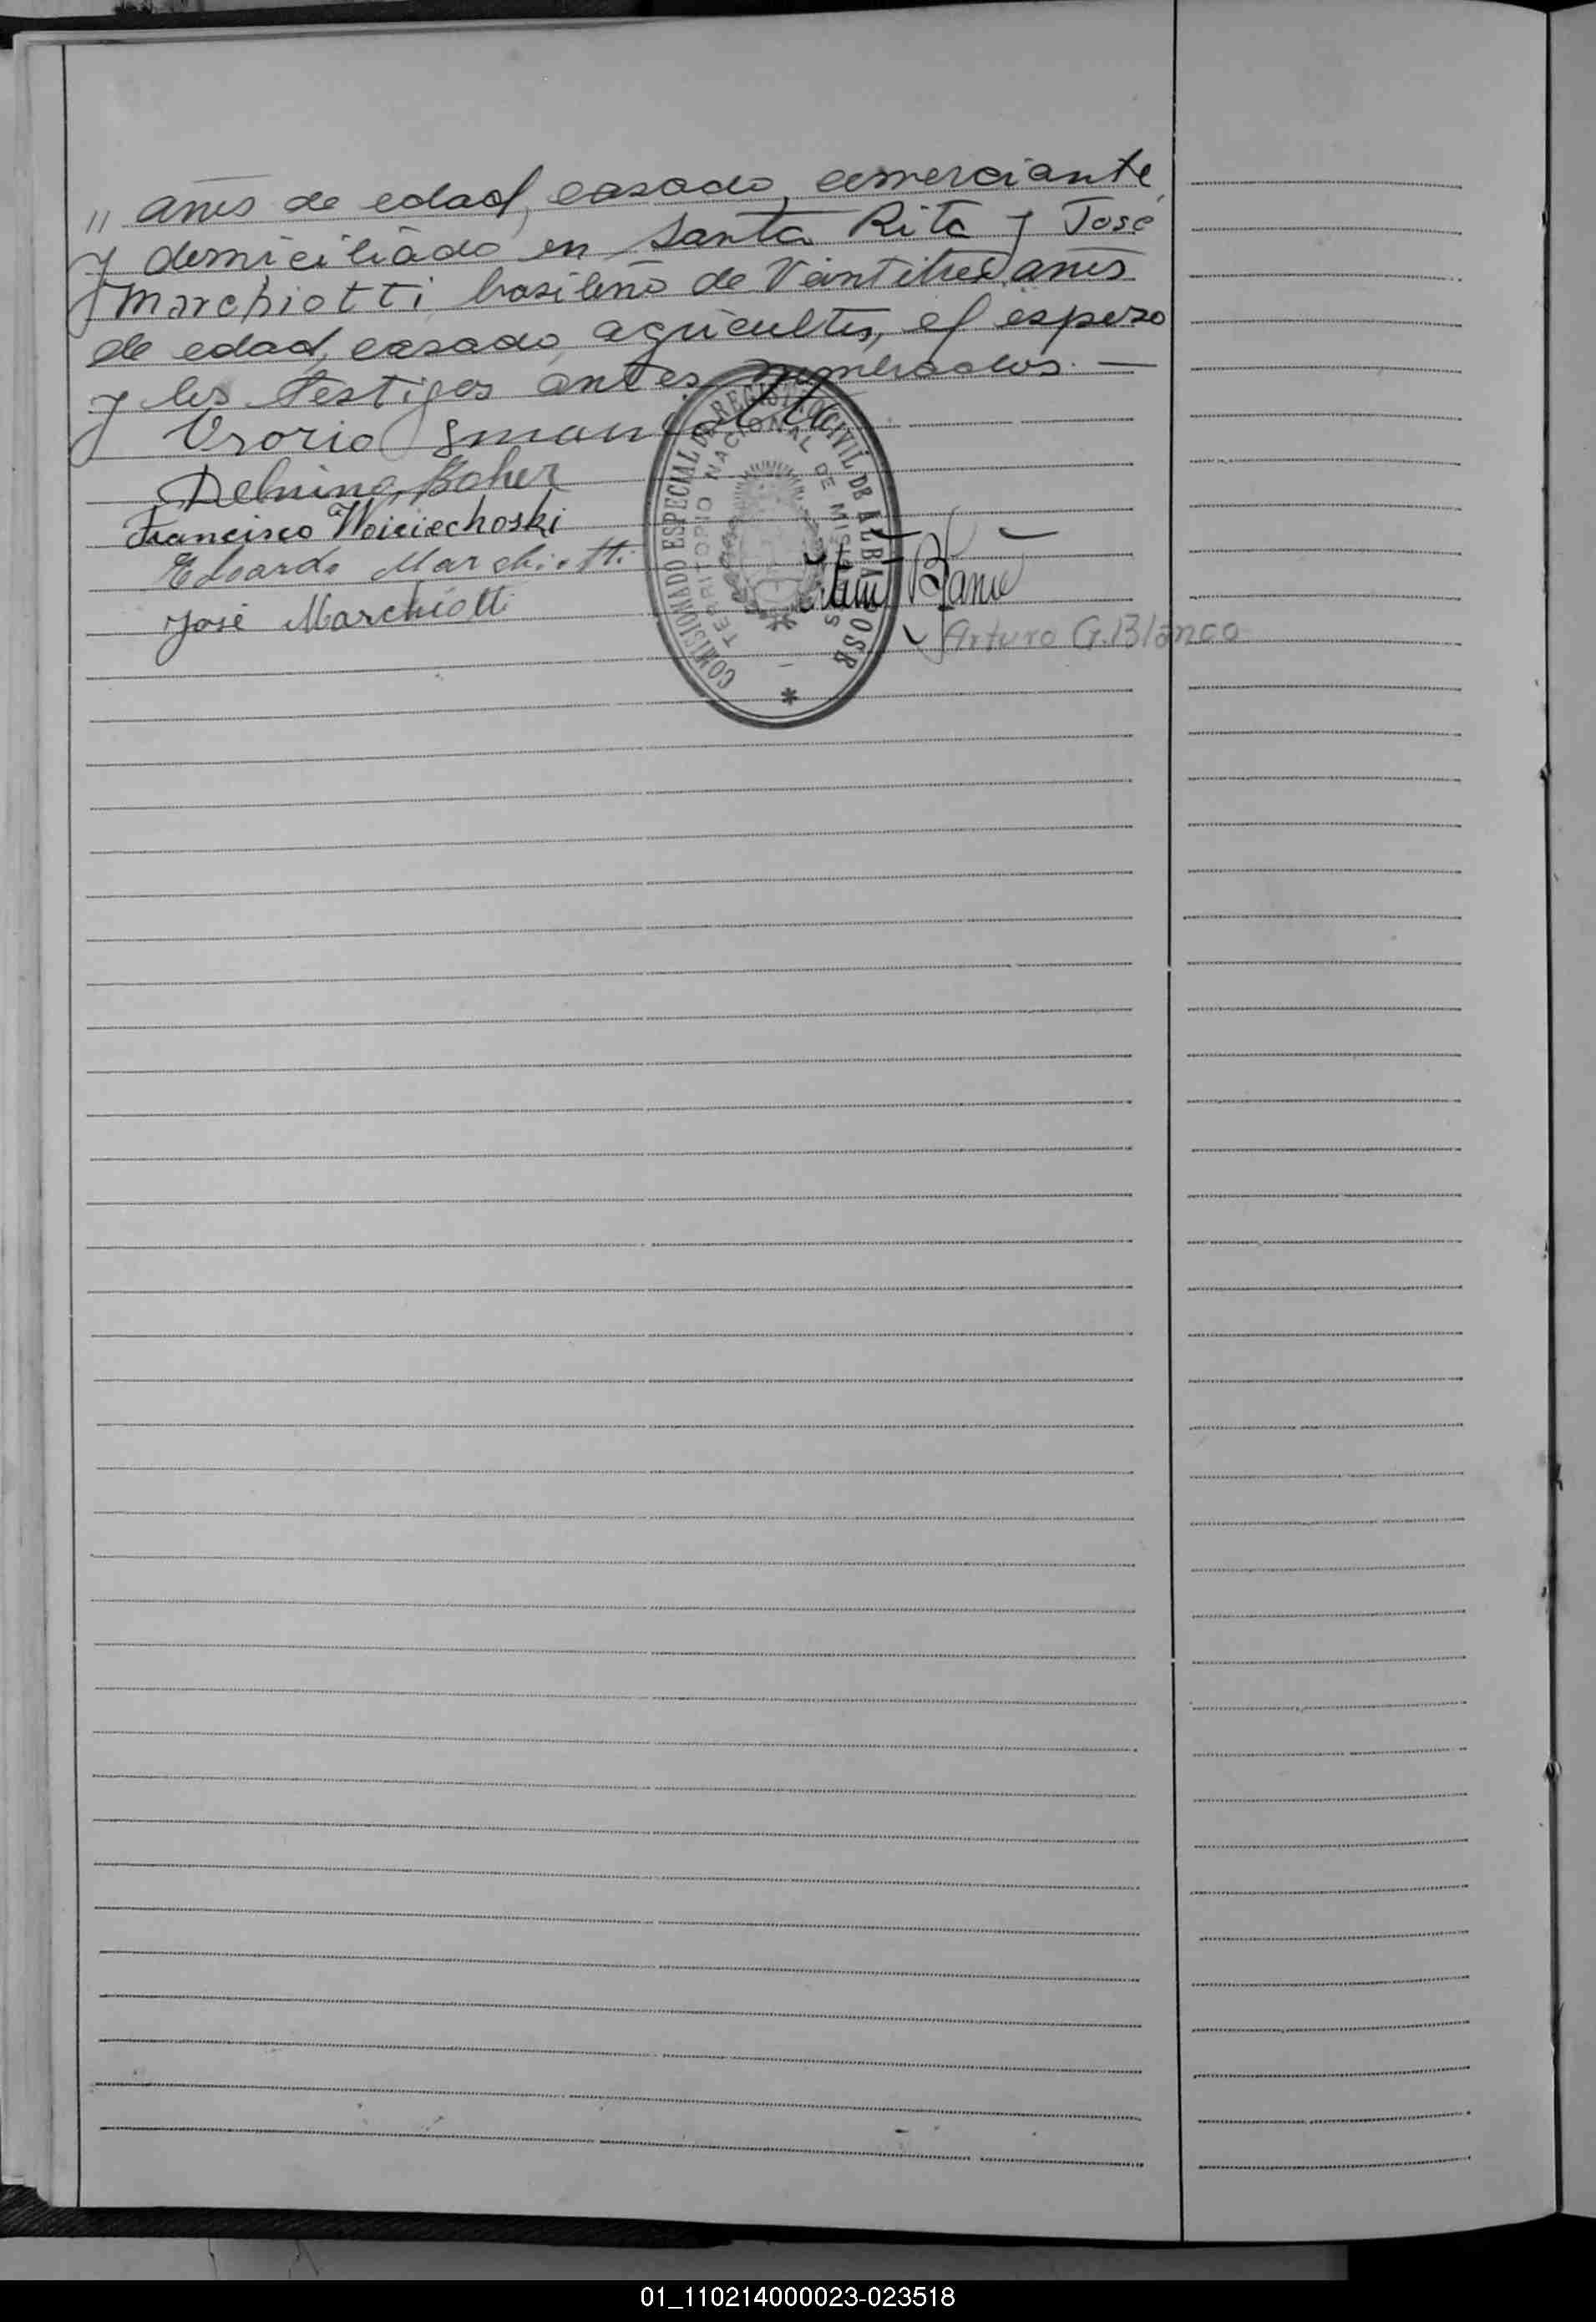 " años de edad, casado, comerciante,
y domiciliado en Santa Rita y José
Marchiotti brasileño de Veintitres años
de edad, casado, agricultor, el esposo
y los testigos antes nombrados. —
Osorio
Delmina Boher
Francisco Woiciechoski
Eduardo Marchiotti
José Marchiotti
COMISIONADO ESPECIAL DE REGISTRO CIVIL DE ALBA POSSE
TERRITORIO NACIONAL DE MISIONES
Arturo G. Blanco
01_110214000023-023518